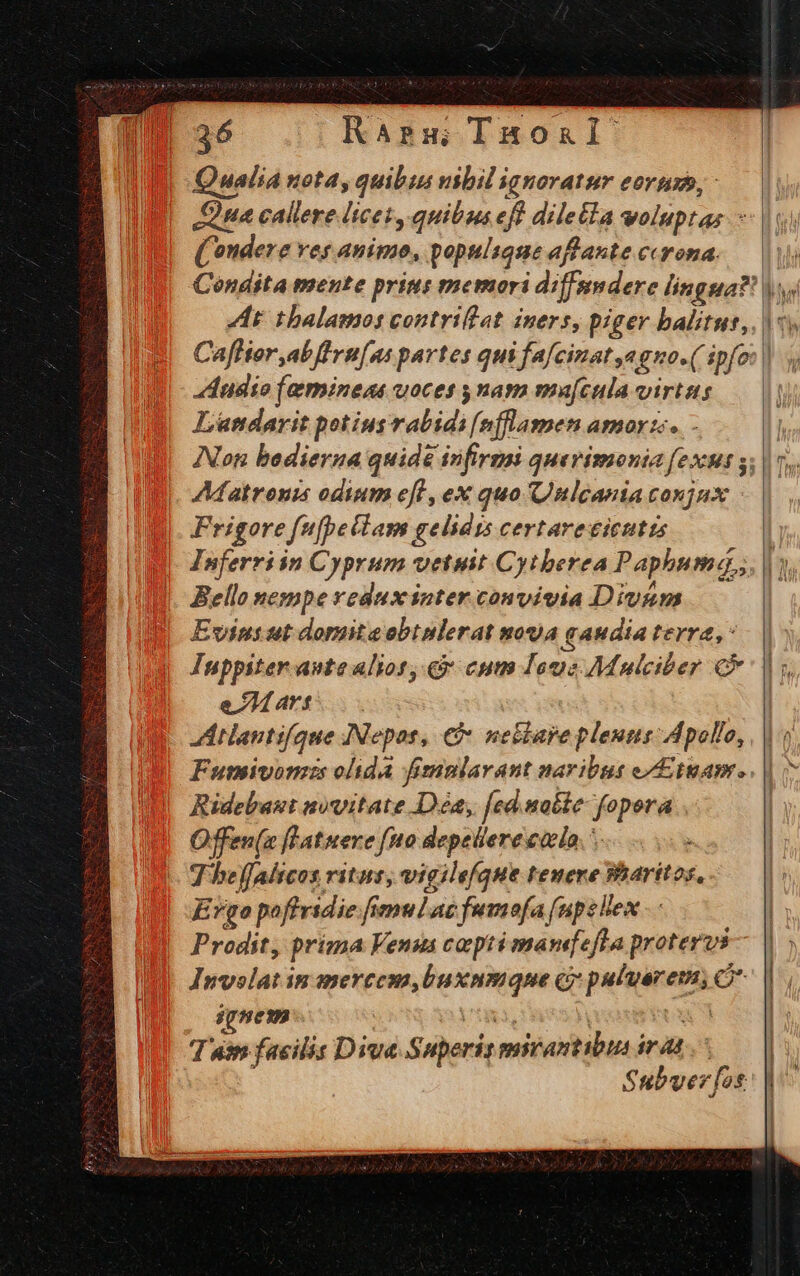 36 RAPH. THORI
Qualia nota, quibus nihil ignoratur eorum,
Quæ callere licet, quibus eſt dilecta voluptas
Condere res animo, populisque aſtante corona.
Condita mente prius memori diffundere lingua?
At thalamos contriſtat iners, piger halitus,
Caſtior, abſtruſas partes qui faſcinat, agno. (ipſo
Audio fœmineas voces; nam maſcula virtus
Laudarit potius rabidi ſufflamen amoris.
Non hodierna quidē infirmi querimonia ſexus;
Matronis odium eſt, ex quo Vulcania conjnx
Frigore ſuſpectam gelidis certare cicutis
Inferri in Cyprum vetuit Cytherea Paphumq;,
Bello nempe redux inter convivia Divûm
Evius ut domitæ obtulerat nova gaudia terræ,
Iuppiter ante alios, & cum Iove Mulciber &
Mars
Atlantiſque Nepos, & nectare plenus Apollo,
Fumivomis olidâ ſimularant naribus Ætnam.
Ridebant novitate Deæ, ſed nocte ſopora
Offenſæ ſtatuere ſuo depellere cœlo
Theſſalicos ritus, vigileſque tenere maritos.
Ergo poſtridie ſimul ac fumoſa ſupellex
Prodit, prima Venus cœpti manifeſta protervi
Involat in mercem, buxumque & pulverem, &
ignem
Tam facilis Diva Superis mirantibus iras
Subverſos